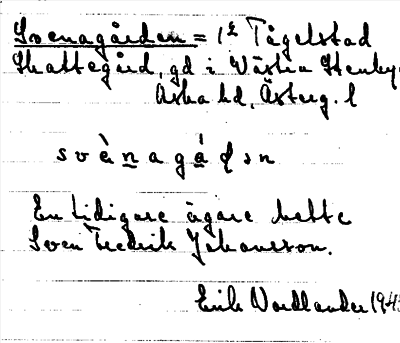 Svenagården = 1/2 Tågelstad
Skattegård, gd i Västra Stenby
Aska hd, Österg. l
svènagáɖɜn
En tidigare ägare hette
Sven Fredrik Johansson.
Erik Nordlander 194